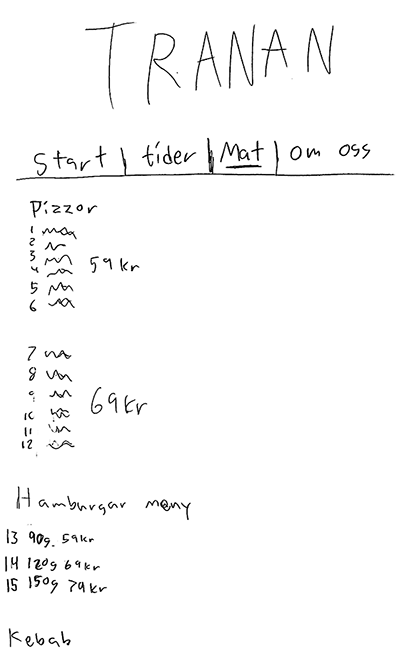 TRANAN
Start | tider | Mat | om oss
Pizzor
1
2
3
4 59 kr
5
6
7
8
9
10 69 kr
11
12
Hamburgar meny
13 90g. 59kr
14 120g 69kr
15 150g 79kr
Kebab